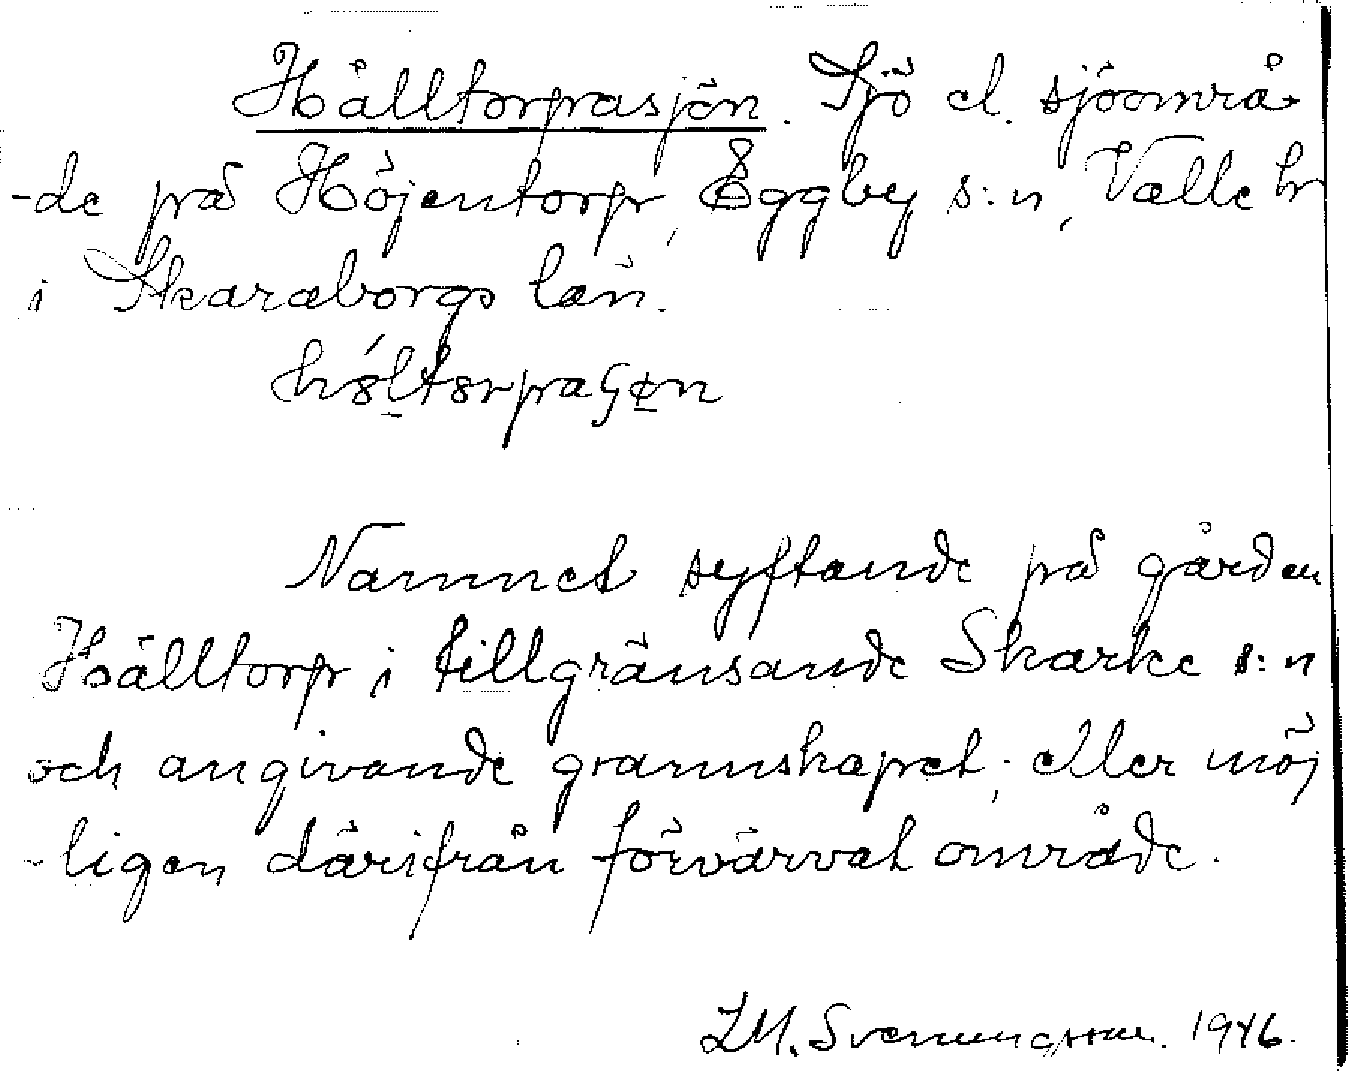 Hålltorpasjön. Sjö el. sjöområ-
-de på Höjentorp, Eggby s:n, Valle hr
i Skaraborgs län.
Namnet syftande på gården
Hålltorp i tillgränsande Skarke s:n
och angivande grannskapet; eller möj
-ligen därifrån förvärvat område.
1946.